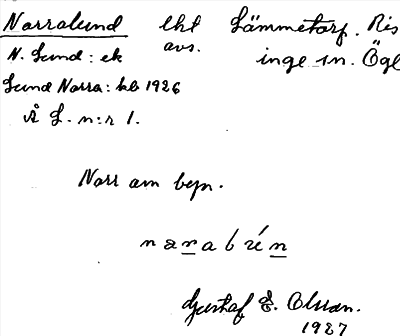 Norralund lht Lämmetorp. Ris
N. Lund: ek avs. inge sn. Ögl
Lund Norra: hb 1926
Å L. n:r 1.
Norr om byn.
Gustaf E. Olsson.
1927